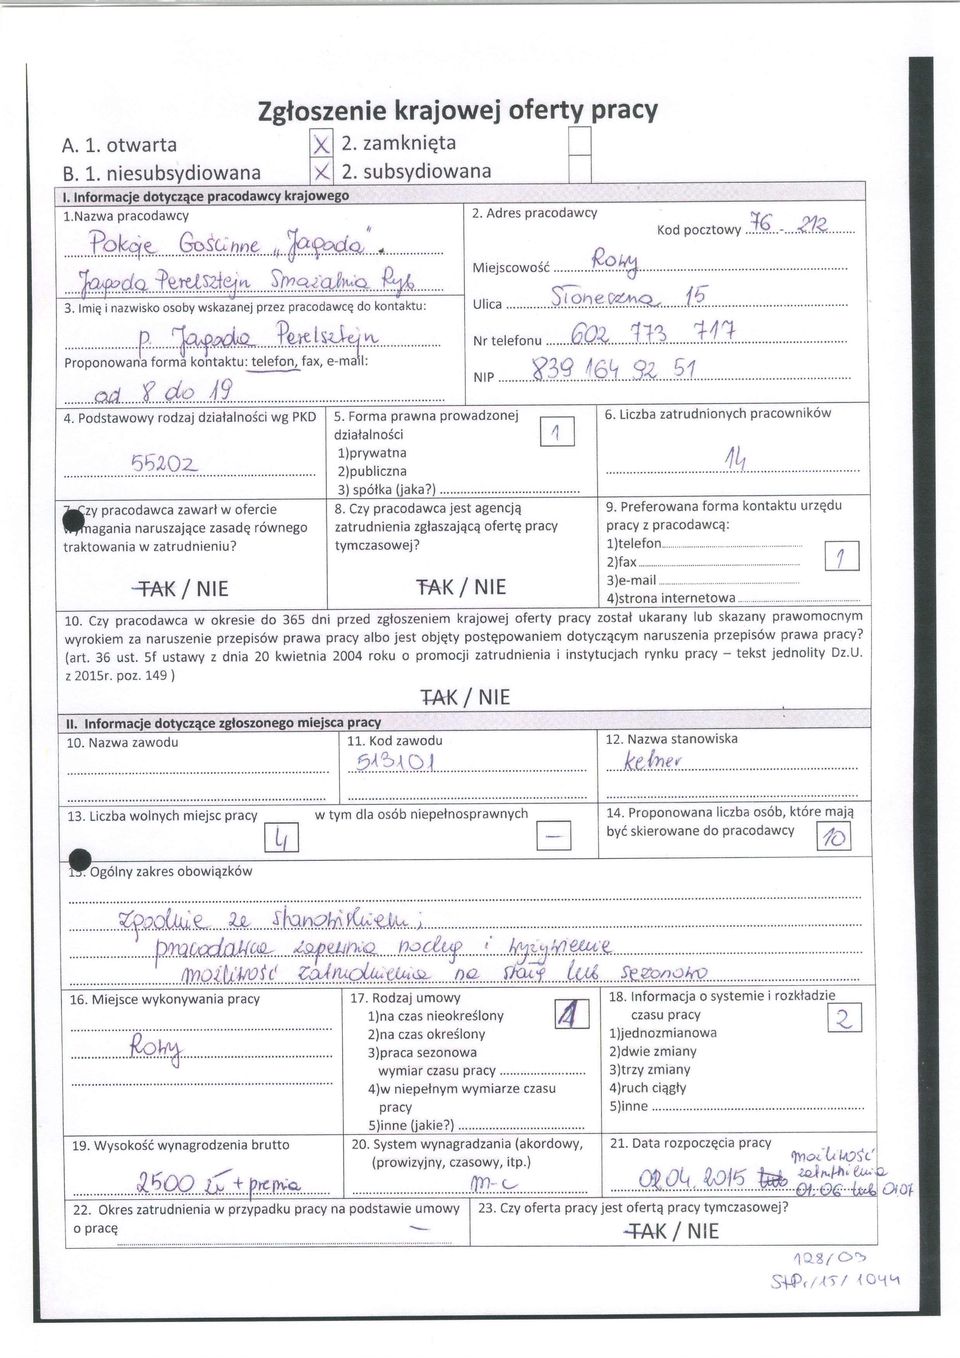 Zgłoszenie krajowej oferty pracy
A. 1. otwarta X 2. zamknięta
B. 1. niesubsydiowana X 2. subsydiowana
I. Informacje dotyczące pracodawcy krajowego
1.Nazwa pracodawcy
Pokoje Gościnne „Jagoda"
Jagoda Perelsztejn Smażalnia Ryb
2. Adres pracodawcy
Kod pocztowy 76 - 212
Miejscowość Rowy
Ulica Słoneczna 15
Nr telefonu 602 773 717
NIP 839 164 92 51
3. Imię i nazwisko osoby wskazanej przez pracodawcę do kontaktu:
p. Jagoda Perelsztejn
Proponowana forma kontaktu: telefon, fax, e-mail:
od 8 do 19
4. Podstawowy rodzaj działalności wg PKD
5520Z
5. Forma prawna prowadzonej
działalności 1
1)prywatna
2)publiczna
3) spółka (jaka?)
6. Liczba zatrudnionych pracowników
14
7. Czy pracodawca zawarł w ofercie
wymagania naruszające zasadę równego
traktowania w zatrudnieniu?
TAK / NIE
8. Czy pracodawca jest agencją
zatrudnienia zgłaszającą ofertę pracy
tymczasowej?
TAK / NIE
9. Preferowana forma kontaktu urzędu
pracy z pracodawcą:
1)telefon
2)fax 1
3)e-mail
4)strona internetowa
10. Czy pracodawca w okresie do 365 dni przed zgłoszeniem krajowej oferty pracy został ukarany lub skazany prawomocnym
wyrokiem za naruszenie przepisów prawa pracy albo jest objęty postępowaniem dotyczącym naruszenia przepisów prawa pracy?
(art. 36 ust. 5f ustawy z dnia 20 kwietnia 2004 roku o promocji zatrudnienia i instytucjach rynku pracy – tekst jednolity Dz.U.
z 2015r. poz. 149 )
TAK / NIE
II. Informacje dotyczące zgłoszonego miejsca pracy
10. Nazwa zawodu
11. Kod zawodu
513101
12. Nazwa stanowiska
kelner
13. Liczba wolnych miejsc pracy 4 w tym dla osób niepełnosprawnych –
14. Proponowana liczba osób, które mają
być skierowane do pracodawcy 10
15. Ogólny zakres obowiązków
Zgodnie ze stanowiskiem;
pracodawca zapewnia nocleg i wyżywienie
możliwość zatrudnienia na stałe lub sezonowo
16. Miejsce wykonywania pracy
Rowy
17. Rodzaj umowy
1)na czas nieokreślony 1
2)na czas określony
3)praca sezonowa
wymiar czasu pracy
4)w niepełnym wymiarze czasu
pracy
5)inne (jakie?)
18. Informacja o systemie i rozkładzie
czasu pracy 2
1)jednozmianowa
2)dwie zmiany
3)trzy zmiany
4)ruch ciągły
5)inne
19. Wysokość wynagrodzenia brutto
2500 zł + premia
20. System wynagradzania (akordowy,
(prowizyjny, czasowy, itp.)
m-c
21. Data rozpoczęcia pracy
możliwość
zatrudnienia
02.04.2015 lub 01.06 lub 01.07
22. Okres zatrudnienia w przypadku pracy na podstawie umowy
o pracę –
23. Czy oferta pracy jest ofertą pracy tymczasowej?
TAK / NIE
128/03
StPr/15/1044